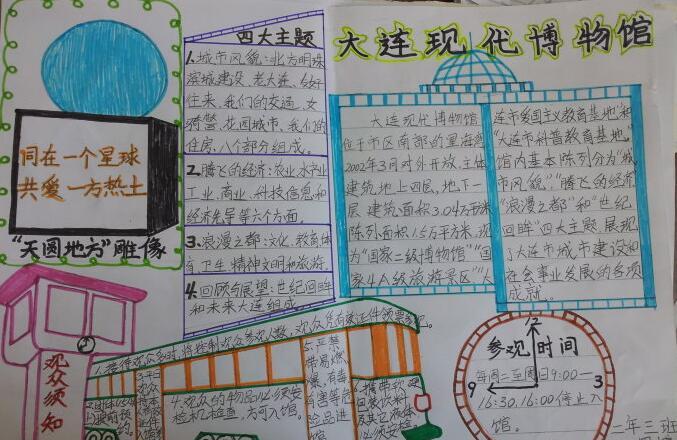 大连现代博物馆
四大主题
1.城市风貌:北方明珠
滨城建设、老大连、以
往来、我们的交通、女
骑警、花园城市、我们的
住房、八个部分组成。
2.腾飞的经济:农业、水产业
工业、商业、科技信息和
经济先导等六个方面。
3.浪漫之都:文化、教育体
育、卫生、精神文明和旅游
4.回顾与展望:世纪回眸
和未来大连组成
同在一个星球
共爱一方热土
“天圆地方”雕像
大连现代博物馆
位于市区南部的星海湾
2002年3月对外开放、主体
建筑地上四层、地下一
层、建筑面积3.04万平米
陈列面积1.6万平米、现
为“国家二级博物馆”“国
家4A级旅游景区”“大
连市爱国主义教育基地”和
“大连市科普教育基地。”
馆内基本陈列分为“城
市风貌”“腾飞的经济”
“浪漫之都”和“世纪
回眸”四大主题、展现
了大连市城市建设和
社会事业发展的各项
成就.
观众须知
1.接待观众多时,将控制观众参观人数,观众凭有效证件领票参观。
4.观众的物品必须安
检机检查,方可入馆。
5.严禁
带易燃
爆、有毒
有害等危
险品进
馆
6.携带软硬
包装饮料
及其它液体
必须安检。
参观时间
9
3
每周二至周日9:00—
16:30.16:00停止入
馆。
二年三班